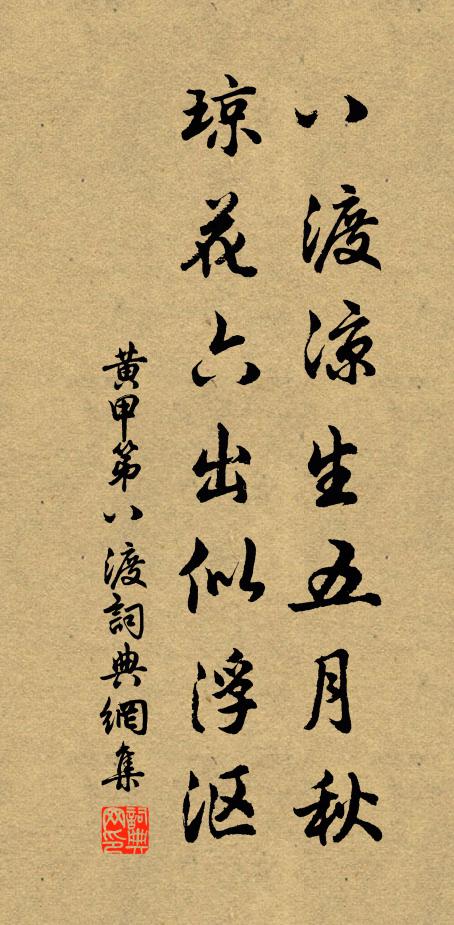 八渡凉生五月秋
琼花六出似浮沤
黄甲第八渡詞典網集
詞典網印